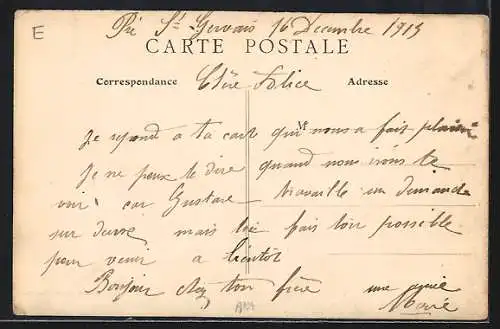 E
Pré St Gervais 16 Decembre 1913
CARTE POSTALE
Correspondance Adresse
Chère Felice
M
Je repond a ta cart qui nous a fait plaisir
Je ne peux te dire quand nous irons te
voir car Gustave travaille un dimanche
sur deux mais toi fais ton possible
pour venir a bientôt
Bonjour chez ton frère une amie
Marie